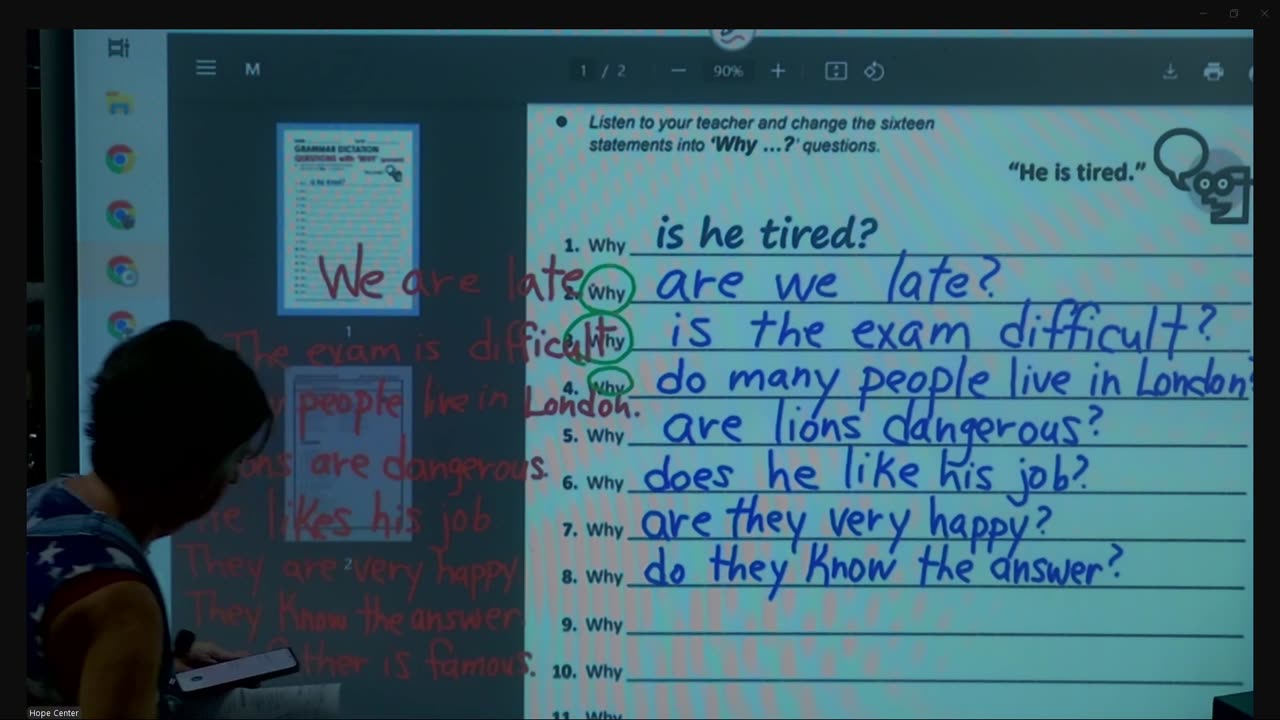 M 1 / 2 90%
Listen to your teacher and change the sixteen
statements into 'Why ...?' questions.
"He is tired."
GRAMMAR DICTATION
QUESTIONS with 'WHY' (present)
is he tired?
1
2
We are late
The exam is difficult
people live in London.
are dangerous.
He likes his job
They are very happy
They know the answer
is famous.
1. Why is he tired?
2. Why are we late?
3. Why is the exam difficult?
4. Why do many people live in London?
5. Why are lions dangerous?
6. Why does he like his job?
7. Why are they very happy?
8. Why do they know the answer?
9. Why
10. Why
11. Why
Hope Center